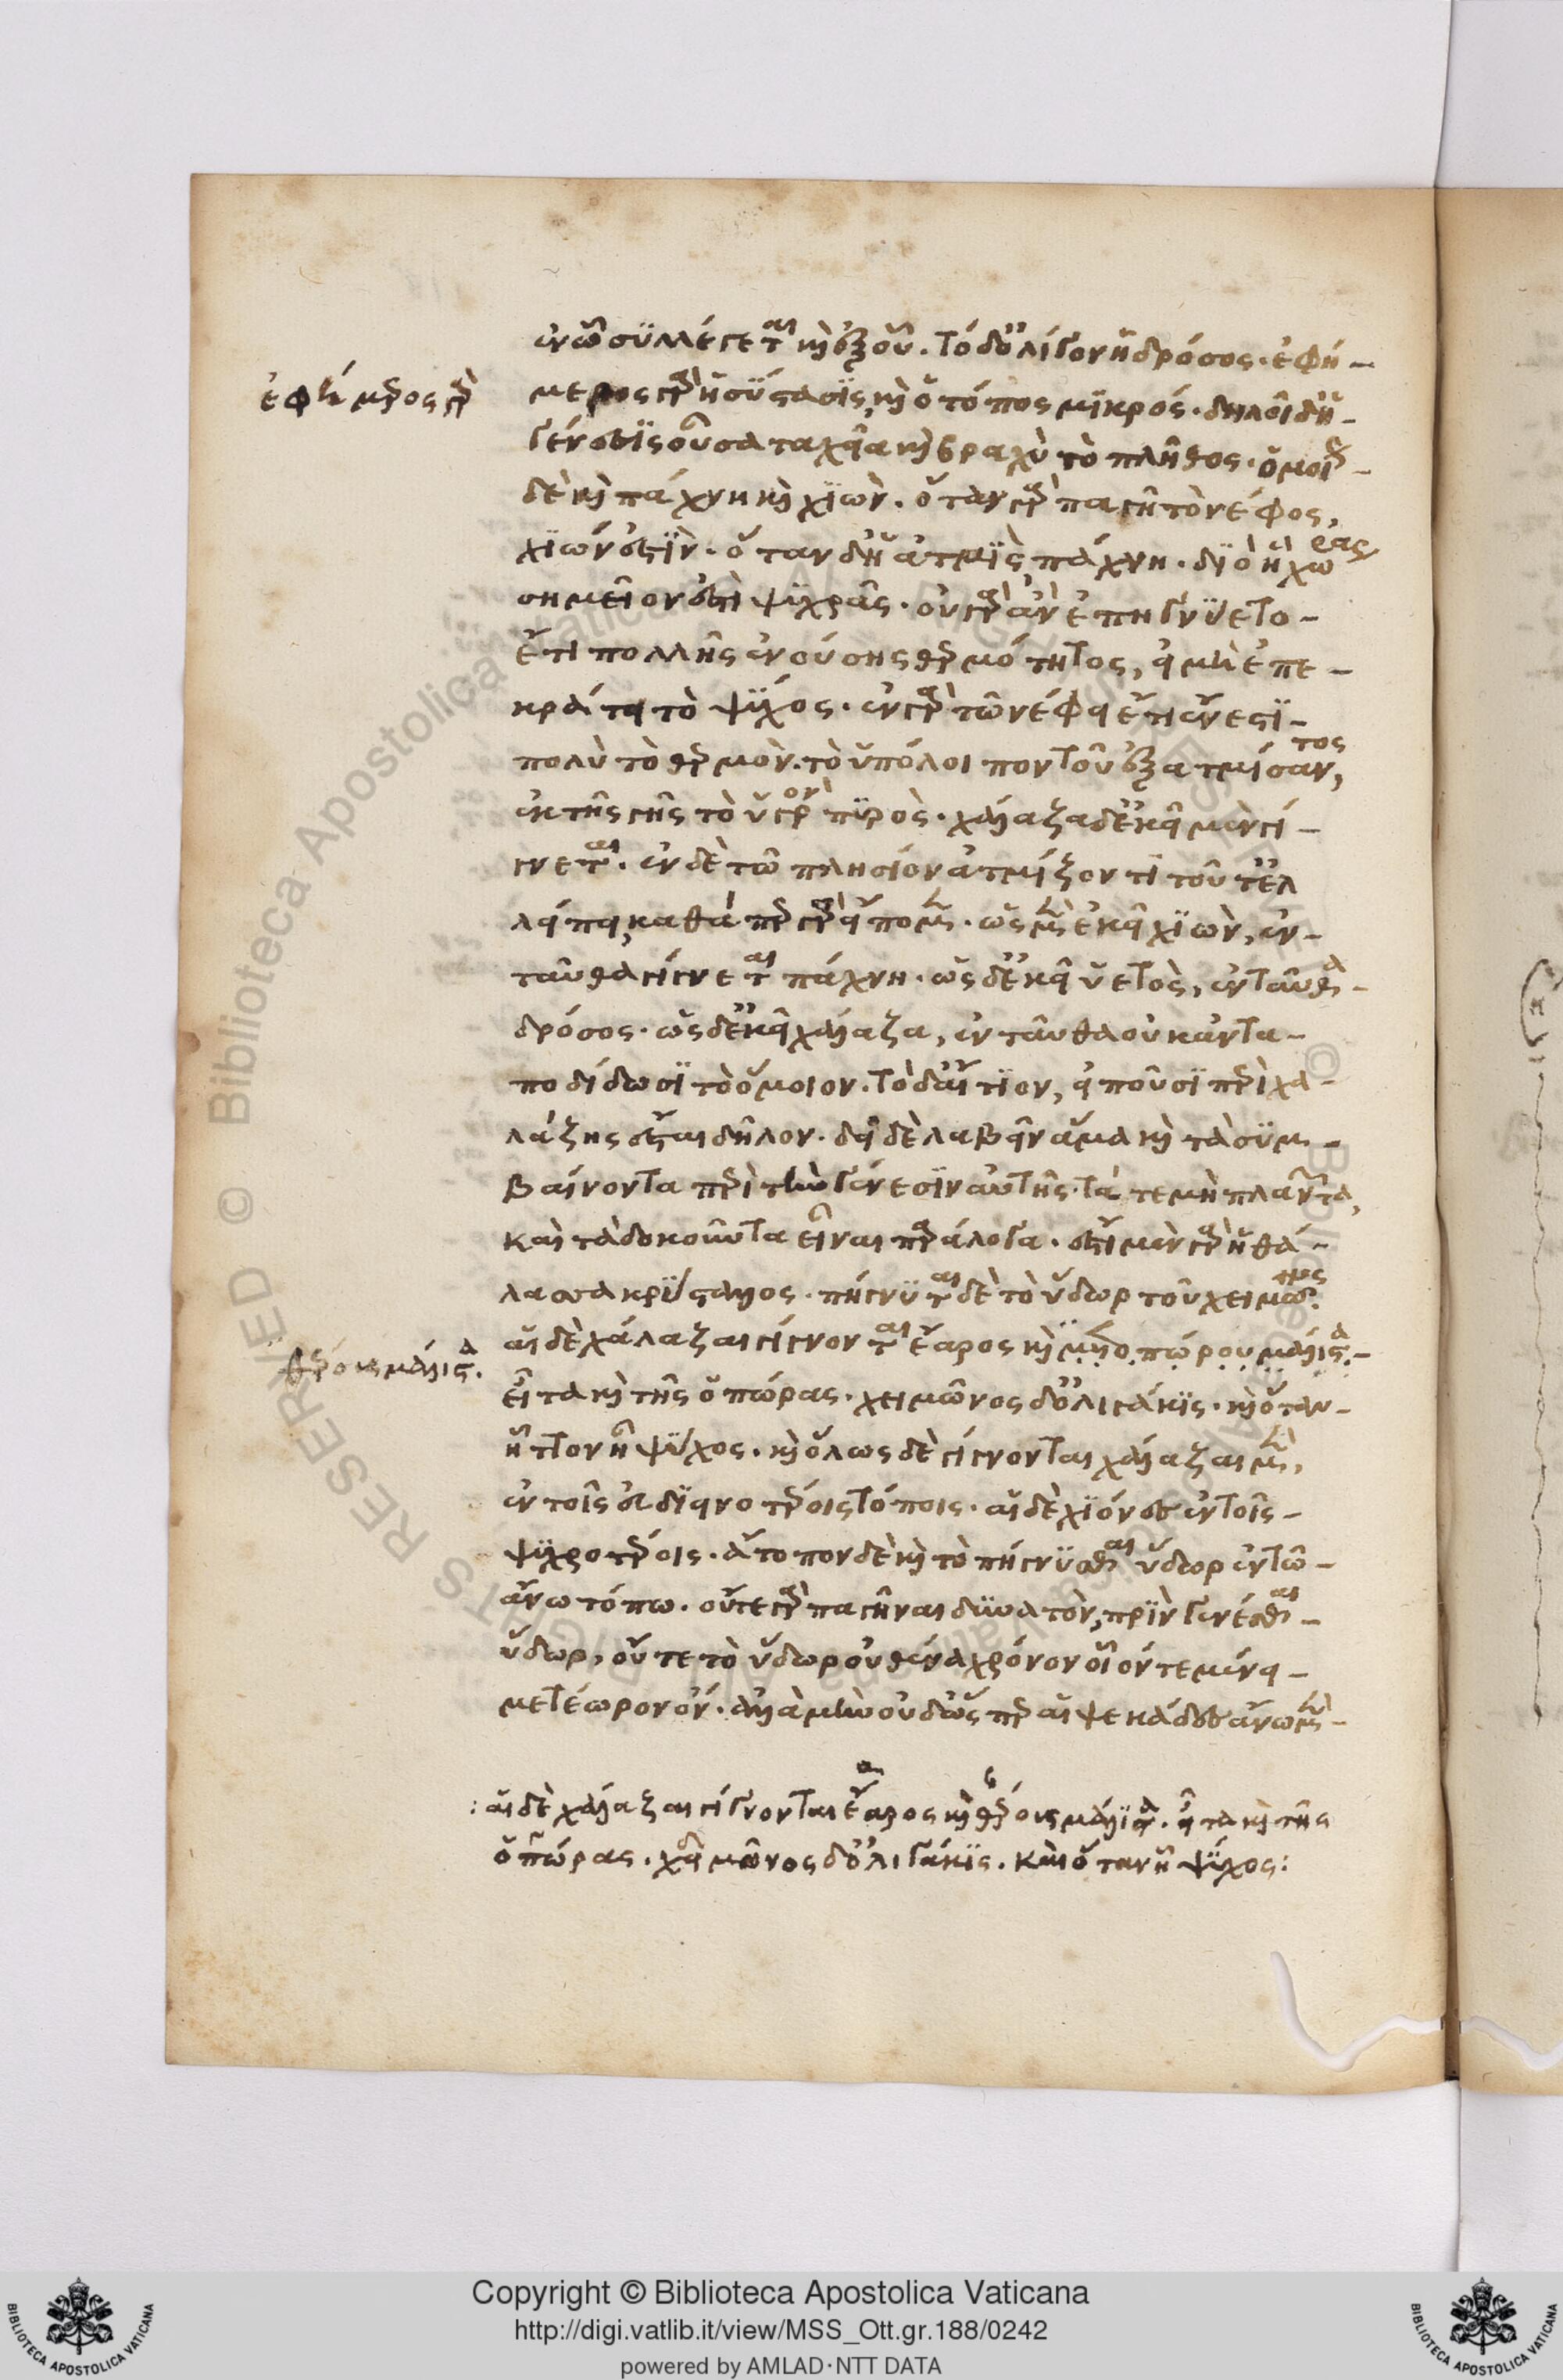 ἐν ᾧ συλλέγεται καὶ ἐξ οὗ. τὸ δ' ὀλίγον ἡ δρόσος. ἐφή-
ἐφήμερος γὰρ
μερος γὰρ ἡ σύστασις, καὶ ὁ τόπος μικρός. δηλοῖ δ' ἡ
γένεσις οὖσα ταχεῖα καὶ βραχὺ τὸ πλῆθος. ὁμοίως
δὲ καὶ πάχνη καὶ χιών. ὅταν γὰρ παγῇ τὸ νέφος,
χιών ἐστιν. ὅταν δ' ἡ ἀτμίς, πάχνη. διὸ ἢ χώρας
σημεῖον ἐστὶ ψυχρᾶς. οὐ γὰρ ἂν ἐπήγνυετο
ἔτι πολλῆς ἐνούσης θερμότητος, εἰ μὴ ἐπε-
κράτει τὸ ψῦχος. ἐν γὰρ τῷ νέφει ἔτι ἔνεστι
πολὺ τὸ θερμὸν. τὸ ὑπόλοιπον τοῦ ἐξατμίσαντος,
ἐκ τῆς γῆς τὸ ὑγρὸν πυρὸς. χάλαζα δ' ἐκεῖ μὲν γί-
γνεται. ἐν δὲ τῷ πλησίον ἀτμίζοντι τοῦτ' ἐλ
λείπει, καθάπερ γὰρ εἴπομεν. ὡς μὲν ἐκεῖ χιὼν, ἐν-
ταῦθα γίγνεται πάχνη. ὡς δ' ἐκεῖ ὑετὸς, ἐνταῦθα
δρόσος. ὡς δ' ἐκεῖ χάλαζα, ἐνταῦθα οὐκ ἀντα-
ποδίδωσι τὸ ὅμοιον. τὸ δ' αἴτιον, εἰποῦσι περὶ χα-
λάζης ἔσται δῆλον. δεῖ δὲ λαβεῖν ἅμα καὶ τὰ συμ-
βαίνοντα περὶ τὴν γένεσιν αὐτῆς. τά τε μὴ πλανῶντα,
καὶ τὰ δοκοῦντα εἶναι παράλογα. ἔστι μὲν γὰρ ἡ χά-
λαζα κρύσταλλος. πήγνυται δὲ τὸ ὕδωρ τοῦ χειμῶνος.
αἱ δὲ χάλαζαι γίγνονται ἔαρος καὶ μετοπώρου μάλιστα.
θέρους μάλιστα.
εἶτα καὶ τῆς ὀπώρας. χειμῶνος δ' ὀλιγάκις. καὶ ὅταν
ἧττον ᾖ ψῦχος. καὶ ὅλως δὲ γίγνονται χάλαζαι μὲν,
ἐν τοῖς εὐδιεινοτέροις τόποις. αἱ δὲ χιόνες ἐν τοῖς
ψυχροτέροις. ἄτοπον δὲ καὶ τὸ πήγνυσθαι ὕδωρ ἐν τῷ
ἄνω τόπῳ. οὔτε γὰρ παγῆναι δυνατὸν, πρὶν γενέσθαι
ὕδωρ, οὔτε τὸ ὕδωρ οὐθένα χρόνον οἷόν τε μένειν
μετέωρον ὄν. ἀλλὰ μὴν οὐδ' ὥσπερ αἱ ψεκάδες ἄνω μὲν
: αἱ δὲ χάλαζαι γίγνονται ἔαρος καὶ θέρους μάλιστα. εἶτα καὶ τῆς
ὀπώρας. χειμῶνος δ' ὀλιγάκις. καὶ ὅταν ᾖ ψῦχος:
Copyright © Biblioteca Apostolica Vaticana
http://digi.vatlib.it/view/MSS_Ott.gr.188/0242
powered by AMLAD·NTT DATA